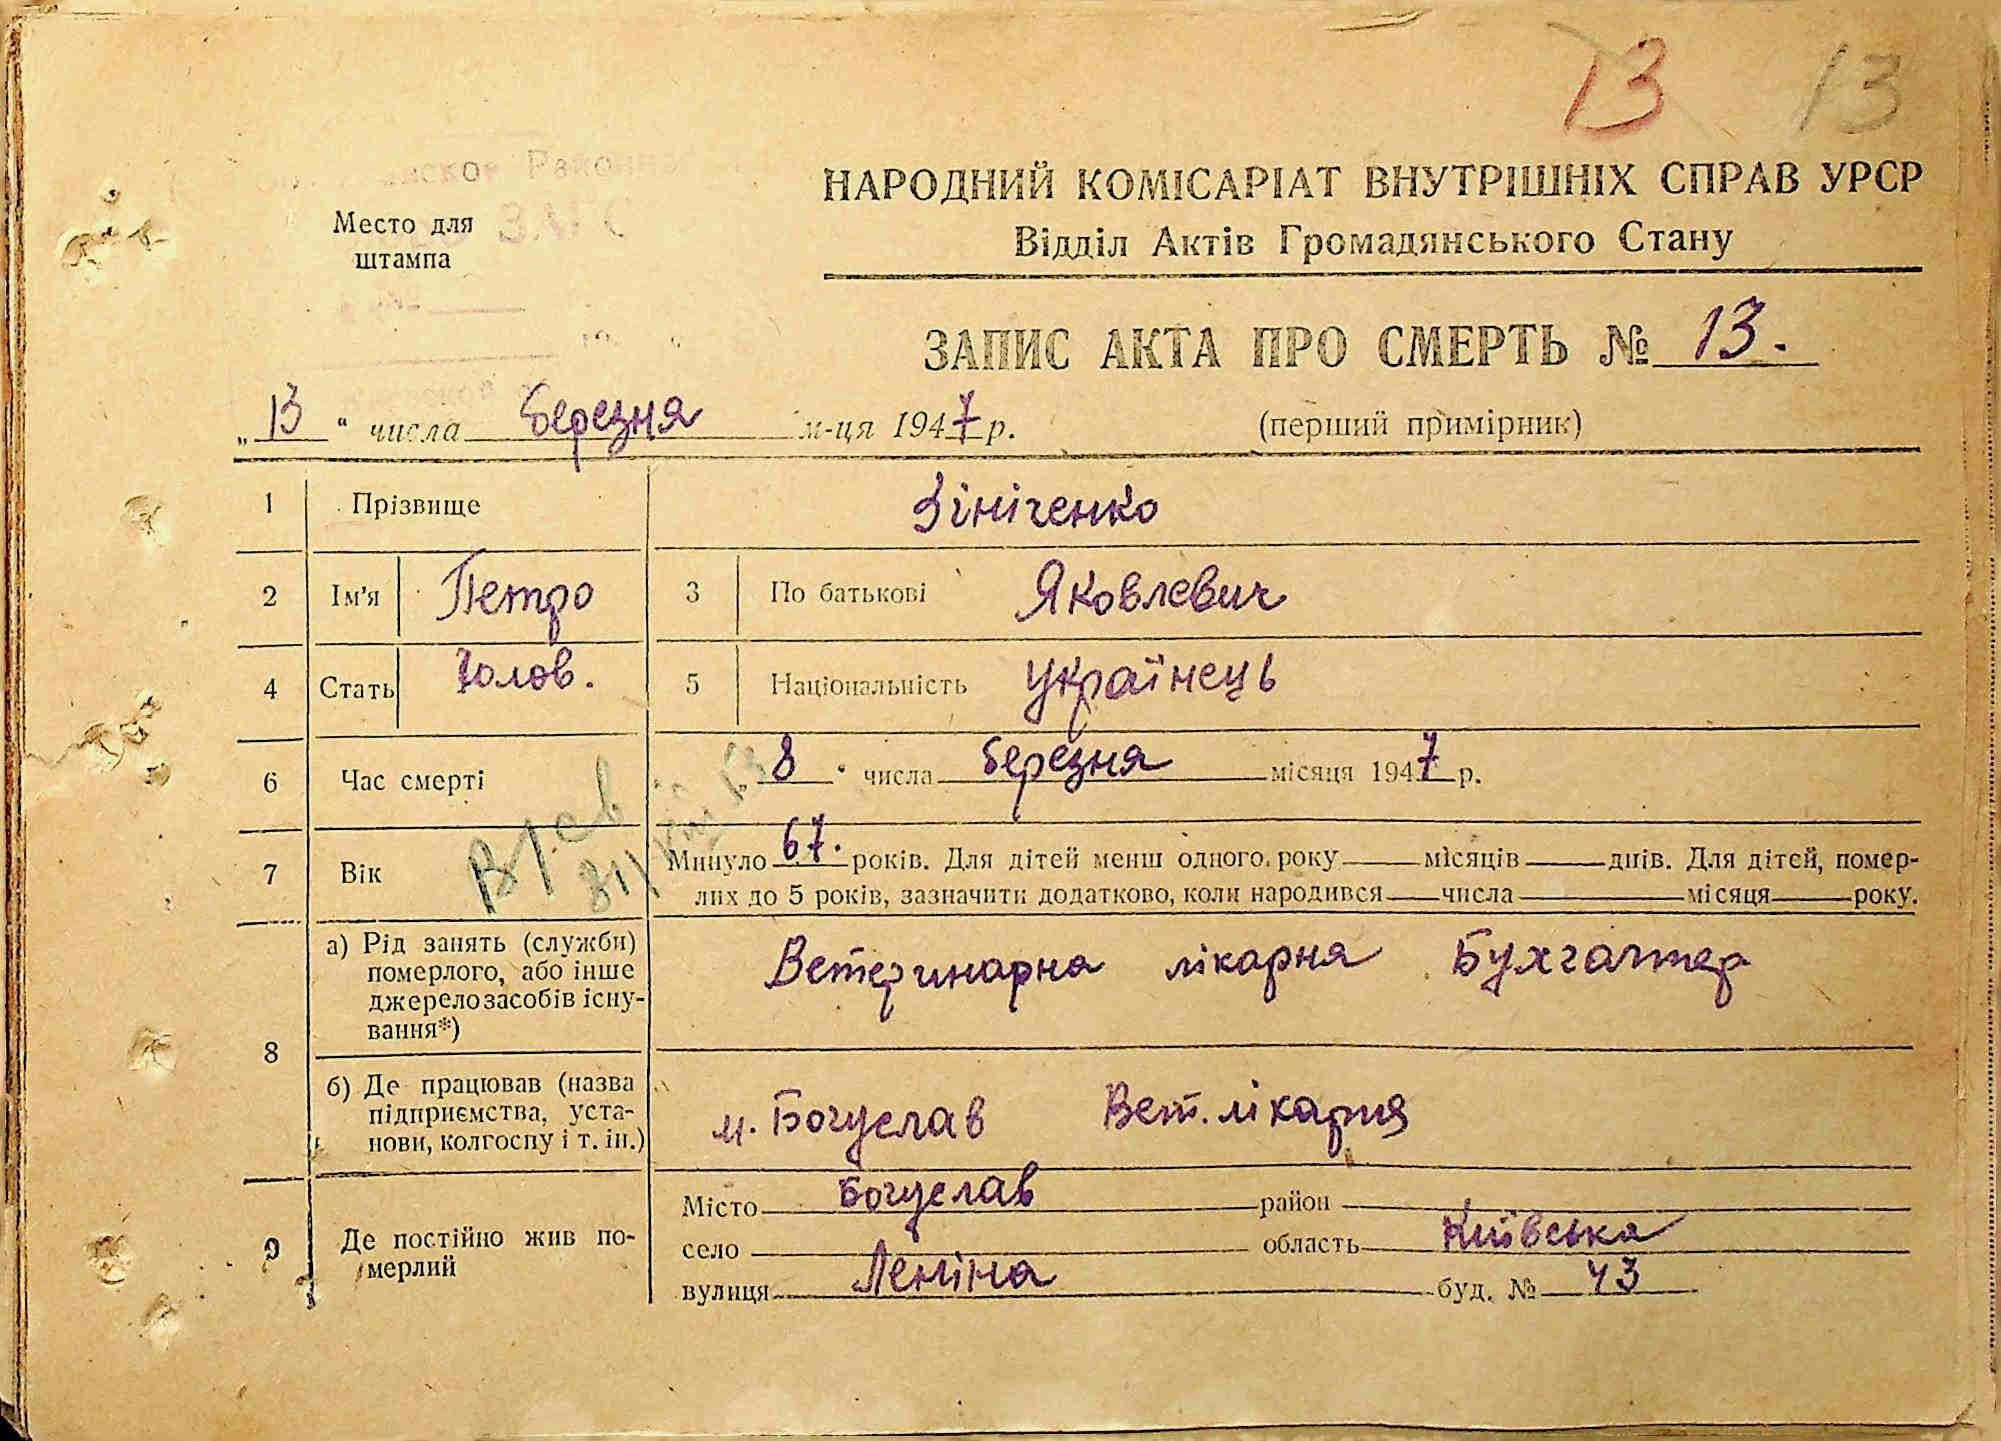 13 13
НАРОДНИЙ КОМІСАРІАТ ВНУТРІШНІХ СПРАВ УРСР
Відділ Актів Громадянського Стану
Место для
штампа
ЗАГС
ЗАПИС АКТА ПРО СМЕРТЬ № 13.
„13“ числа Березня м-ця 1947 р. (перший примірник)
1 Прізвище Зініченко
2 Ім’я Петро 3 По батькові Яковлевич
4 Стать Чолов. 5 Національність Українець
6 Час смерті „8“ числа Березня місяця 1947 р.
7 Вік Минуло 67. років. Для дітей менш одного року місяців днів. Для дітей, помер-
лих до 5 років, зазначити додатково, коли народився числа місяця року.
8 а) Рід занять (служби)
померлого, або інше
джерело засобів існу-
вання*)
Ветеринарна лікарня Бухгалтер
б) Де працював (назва
підприємства, уста-
нови, колгоспу і т. ін.)
м. Богуслав Вет. лікарня
9 Де постійно жив по-
мерлий
Місто Богуслав район
село область Київська
вулиця Леніна буд. № 43